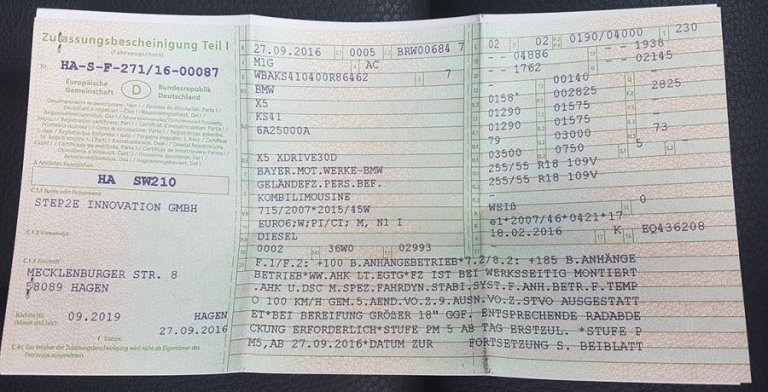 Zulassungsbescheinigung Teil I
(Fahrzeugschein)
Nr. HA-S-F-271/16-00087
Europäische Gemeinschaft
D
Bundesrepublik Deutschland
A Amtliches Kennzeichen
HA SW210
C.1.1 Name oder Firmenname
STEP2E INNOVATION GMBH
C.1.2 Vorname(n)
C.1.3 Anschrift
MECKLENBURGER STR. 8
58089 HAGEN
Nächste HU
(Monat und Jahr)
09.2019
HAGEN
27.09.2016
Datum:
C.4c Der Inhaber der Zulassungsbescheinigung wird nicht als Eigentümer des
Fahrzeugs ausgewiesen.
27.09.2016 0005 BRW00684 7
M1G AC
WBAKS410400R86462 7
BMW
X5
KS41
6A25000A
X5 XDRIVE30D
BAYER.MOT.WERKE-BMW
GELÄNDEFZ.PERS.BEF.
KOMBILIMOUSINE
715/2007*2015/45W
EURO6;W;PI/CI; M, N1 I
DIESEL
0002 36W0 02993
02 02 0190/04000 230
- - 04886 - - 1938
- - 1762 - - 02145
- 00140 -
0158 002825 2825
01290 01575 -
01290 01575 -
79 03000 73
03500 0750 5 -
255/55 R18 109V
255/55 R18 109V
WEIß 0
e1*2007/46*0421*17
18.02.2016 K EQ436208
F.1/F.2: +100 B.ANHÄNGEBETRIEB*7.2/8.2: +185 B.ANHÄNGE
BETRIEB*WW.AHK LT.EGTG*FZ IST BEI WERKSSEITIG MONTIERT
.AHK U.DSC M.SPEZ.FAHRDYN.STABI.SYST.F.ANH.BETR.F.TEMP
O 100 KM/H GEM.5.AEND.VO.Z.9.AUSN.VO.Z.STVO AUSGESTATT
ET*BEI BEREIFUNG GRÖßER 18" GGF. ENTSPRECHENDE RADABDE
CKUNG ERFORDERLICH*STUFE PM 5 AB TAG ERSTZUL. *STUFE P
M5,AB 27.09.2016*DATUM ZUR FORTSETZUNG S. BEIBLATT